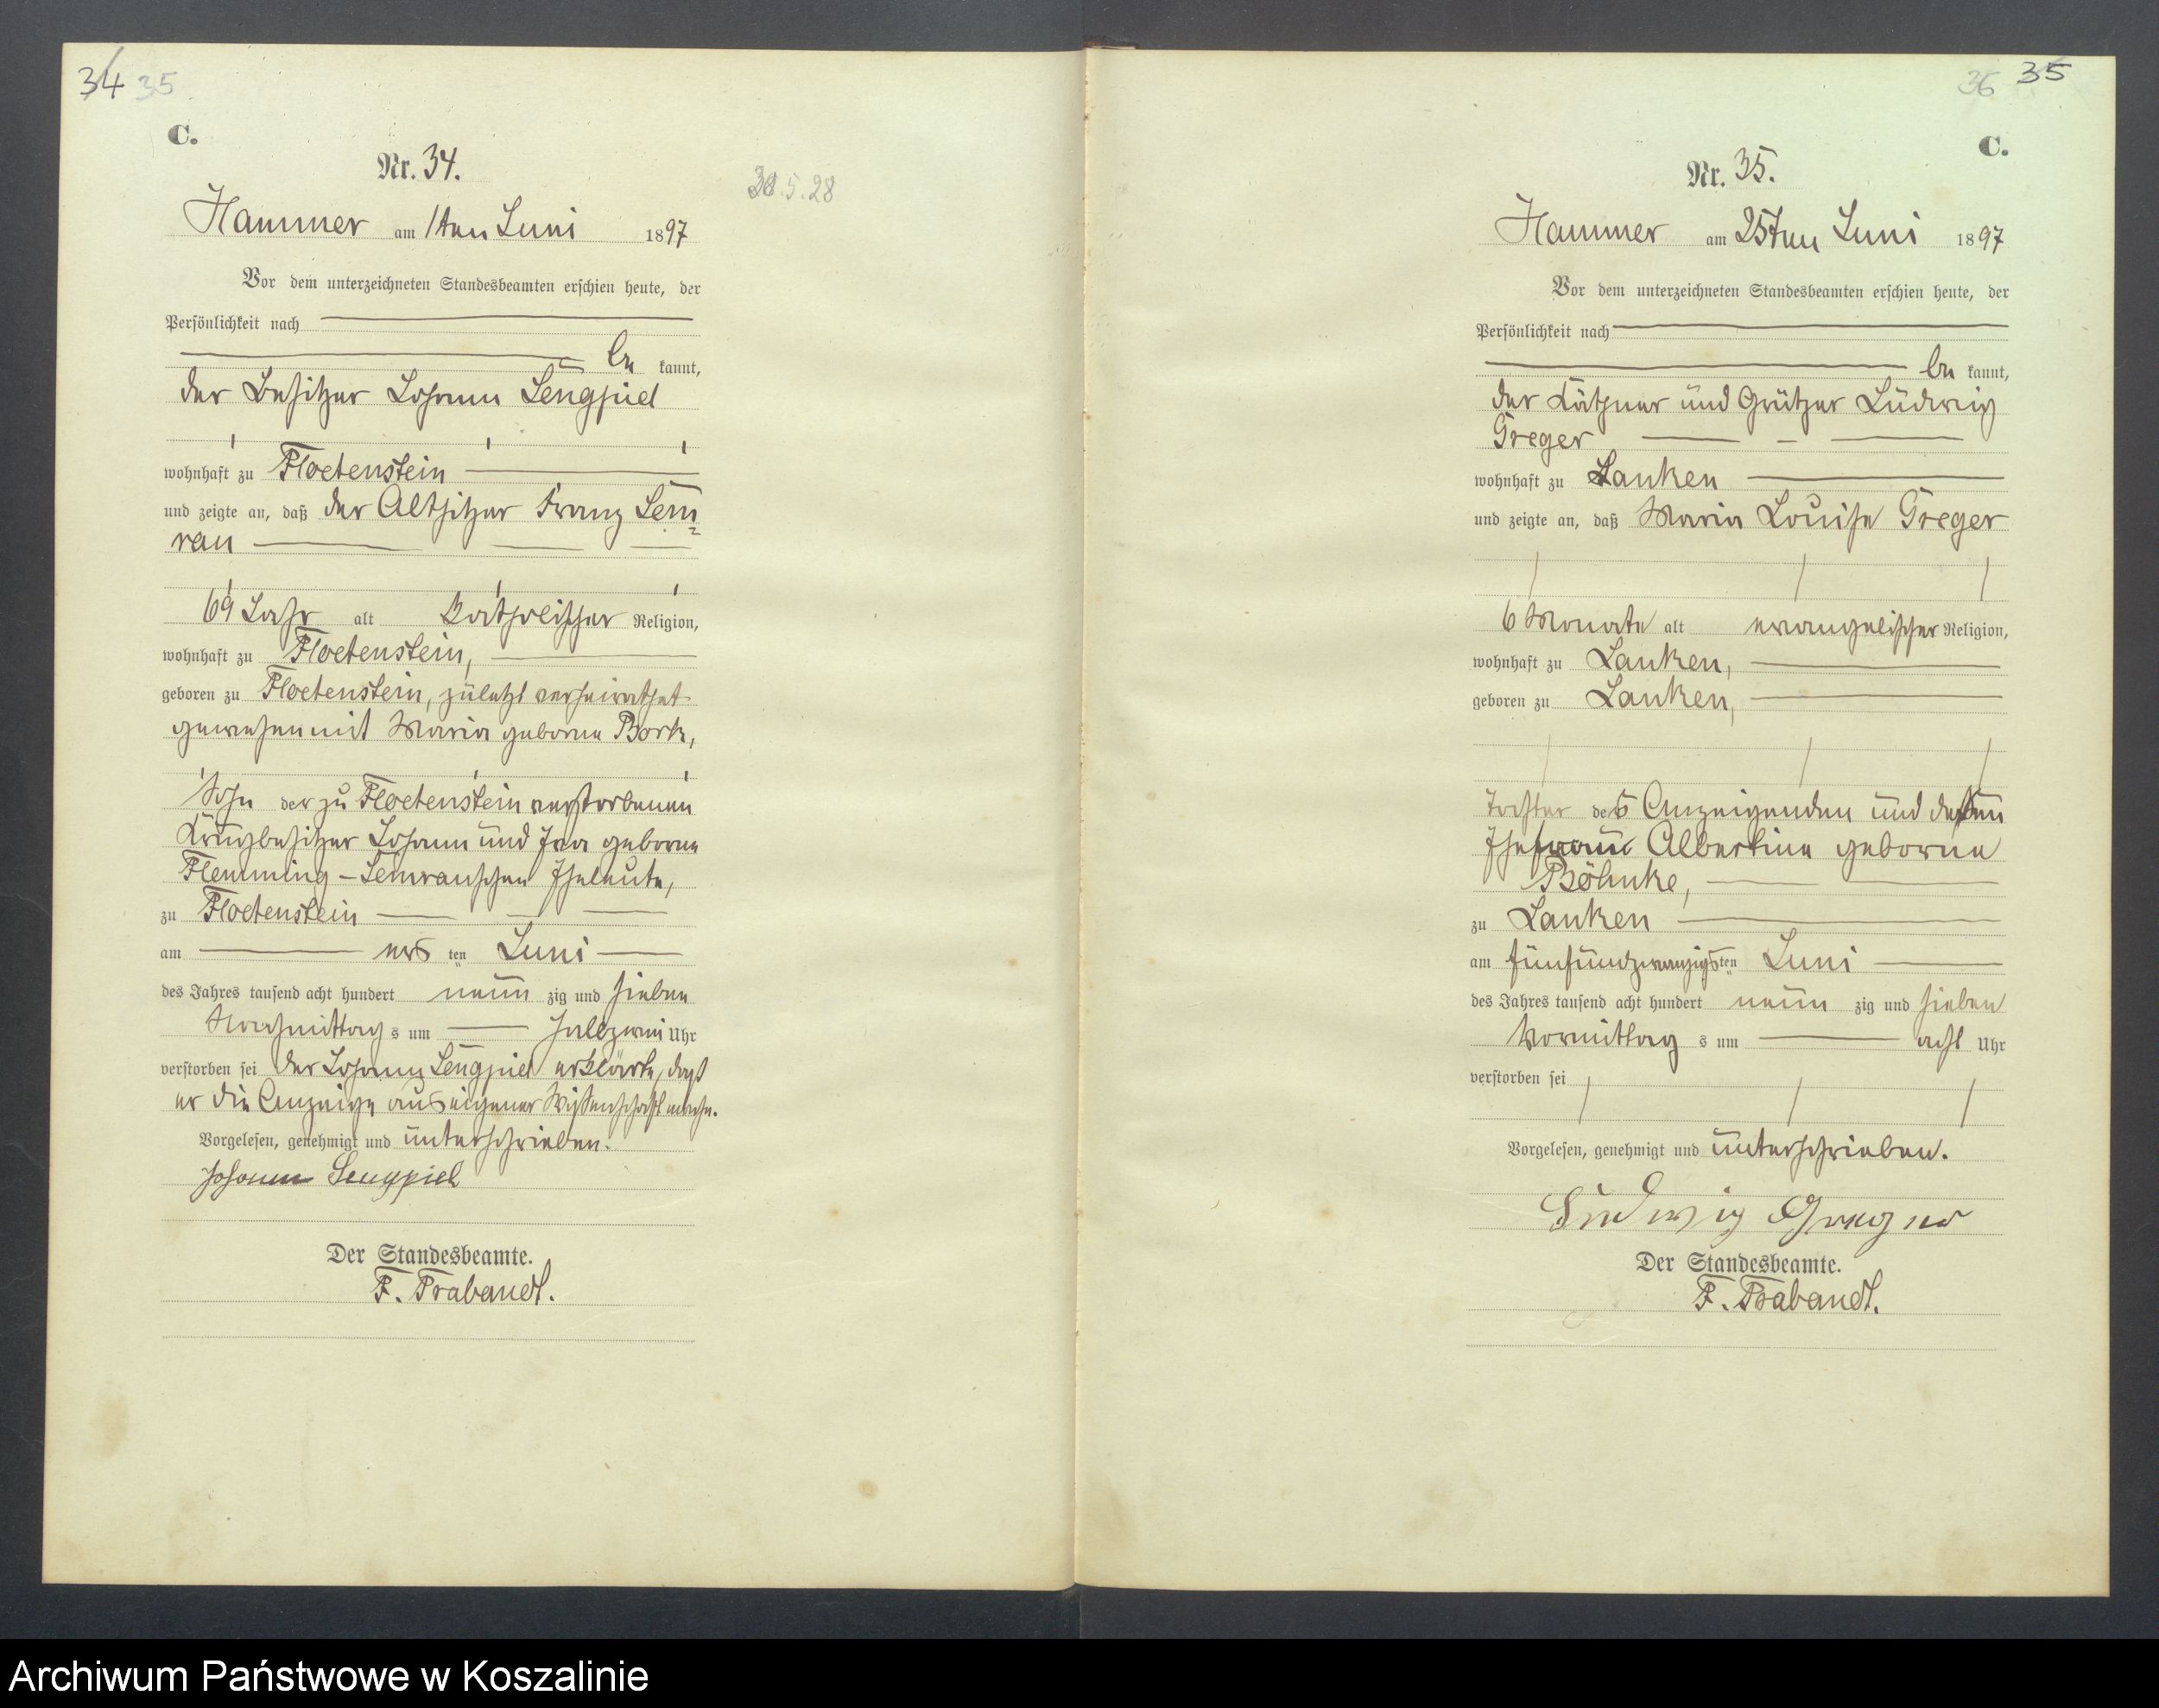 34 35
C.
Nr. 34.
30.5.28
Hammer am 1ten Juni 1897
Vor dem unterzeichneten Standesbeamten erschien heute, der
Persönlichkeit nach
be kannt,
der Besitzer Johann Sengpiel
wohnhaft zu Floetenstein
und zeigte an, daß der Altsitzer Franz Sem
rau
69 Jahr alt katholischer Religion,
wohnhaft zu Floetenstein,
geboren zu Floetenstein, zuletzt verheirathet
gewesen mit Maria geborne Bork,
Sohn der zu Floetenstein verstorbenen
Krugbesitzer Johann und Eva geborne
Flemming - Semrauschen Eheleute,
zu Floetenstein
am ers ten Juni
des Jahres tausend acht hundert neun zig und sieben
Nachmittag s um halbzwei Uhr
verstorben sei der Johann Sengpiel erklärte, daß
er die Anzeige aus eigener Wissenschaft mache.
Vorgelesen, genehmigt und unterschrieben.
Johann Sengpiel
Der Standesbeamte.
F. Prabandt.
36 35
C.
Nr. 35.
Hammer am 25ten Juni 1897
Vor dem unterzeichneten Standesbeamten erschien heute, der
Persönlichkeit nach
be kannt,
der Käthner und Grützer Ludwig
Greger
wohnhaft zu Lanken
und zeigte an, daß Maria Louise Greger
6 Monate alt evangelischer Religion,
wohnhaft zu Lanken,
geboren zu Lanken,
Tochter des Anzeigenden und dessen
Ehefrau Albertine geborne
Böhnke,
zu Lanken
am fünfundzwanzigsten Juni
des Jahres tausend acht hundert neun zig und sieben
Vormittag s um acht Uhr
verstorben sei
Vorgelesen, genehmigt und unterschrieben.
Ludwig Greger
Der Standesbeamte.
F. Prabandt.
Archiwum Państwowe w Koszalinie